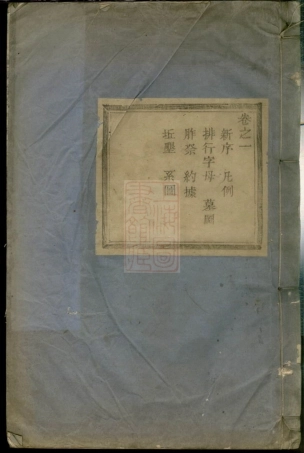 卷之一
新序 凡例
排行字母 墓圖
胙祭 約據
坵墾 系圖